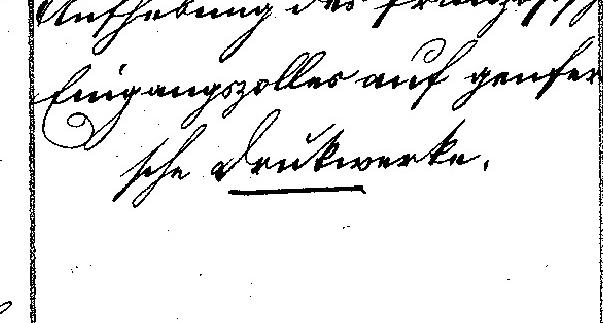 Aufhebung des französisch
Eingangszolles auf genfer
sche Drukwerke.